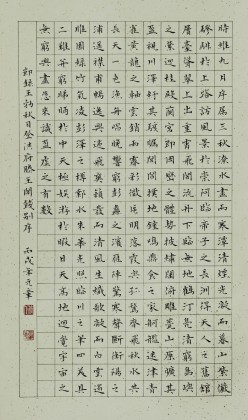 時維九月序屬三秋潦水盡而寒潭清煙光凝而暮山紫儼
驂騑於上路訪風景於崇阿臨帝子之長洲得天人之舊館
層臺聳翠上出重霄飛閣流丹下臨無地鶴汀鳧渚窮島嶼
之縈迴桂殿蘭宮即岡巒之體勢披繡闥俯雕甍山原曠其
盈視川澤紆其駭矚閭閻撲地鐘鳴鼎食之家舸艦迷津青
雀黃龍之舳雲銷雨霽彩徹區明落霞與孤鶩齊飛秋水共
長天一色漁舟唱晚響窮彭蠡之濱雁陣驚寒聲斷衡陽之
浦遙襟甫暢逸興遄飛爽籟發而清風生纖歌凝而白雲遏
睢園綠竹氣凌彭澤之樽鄴水朱華光照臨川之筆四美具
二難并窮睇眄於中天極娛遊於暇日天高地迥覺宇宙之
無窮興盡悲來識盈虛之有數
節錄王勃秋日登洪府滕王閣餞別序 丙戌年元章